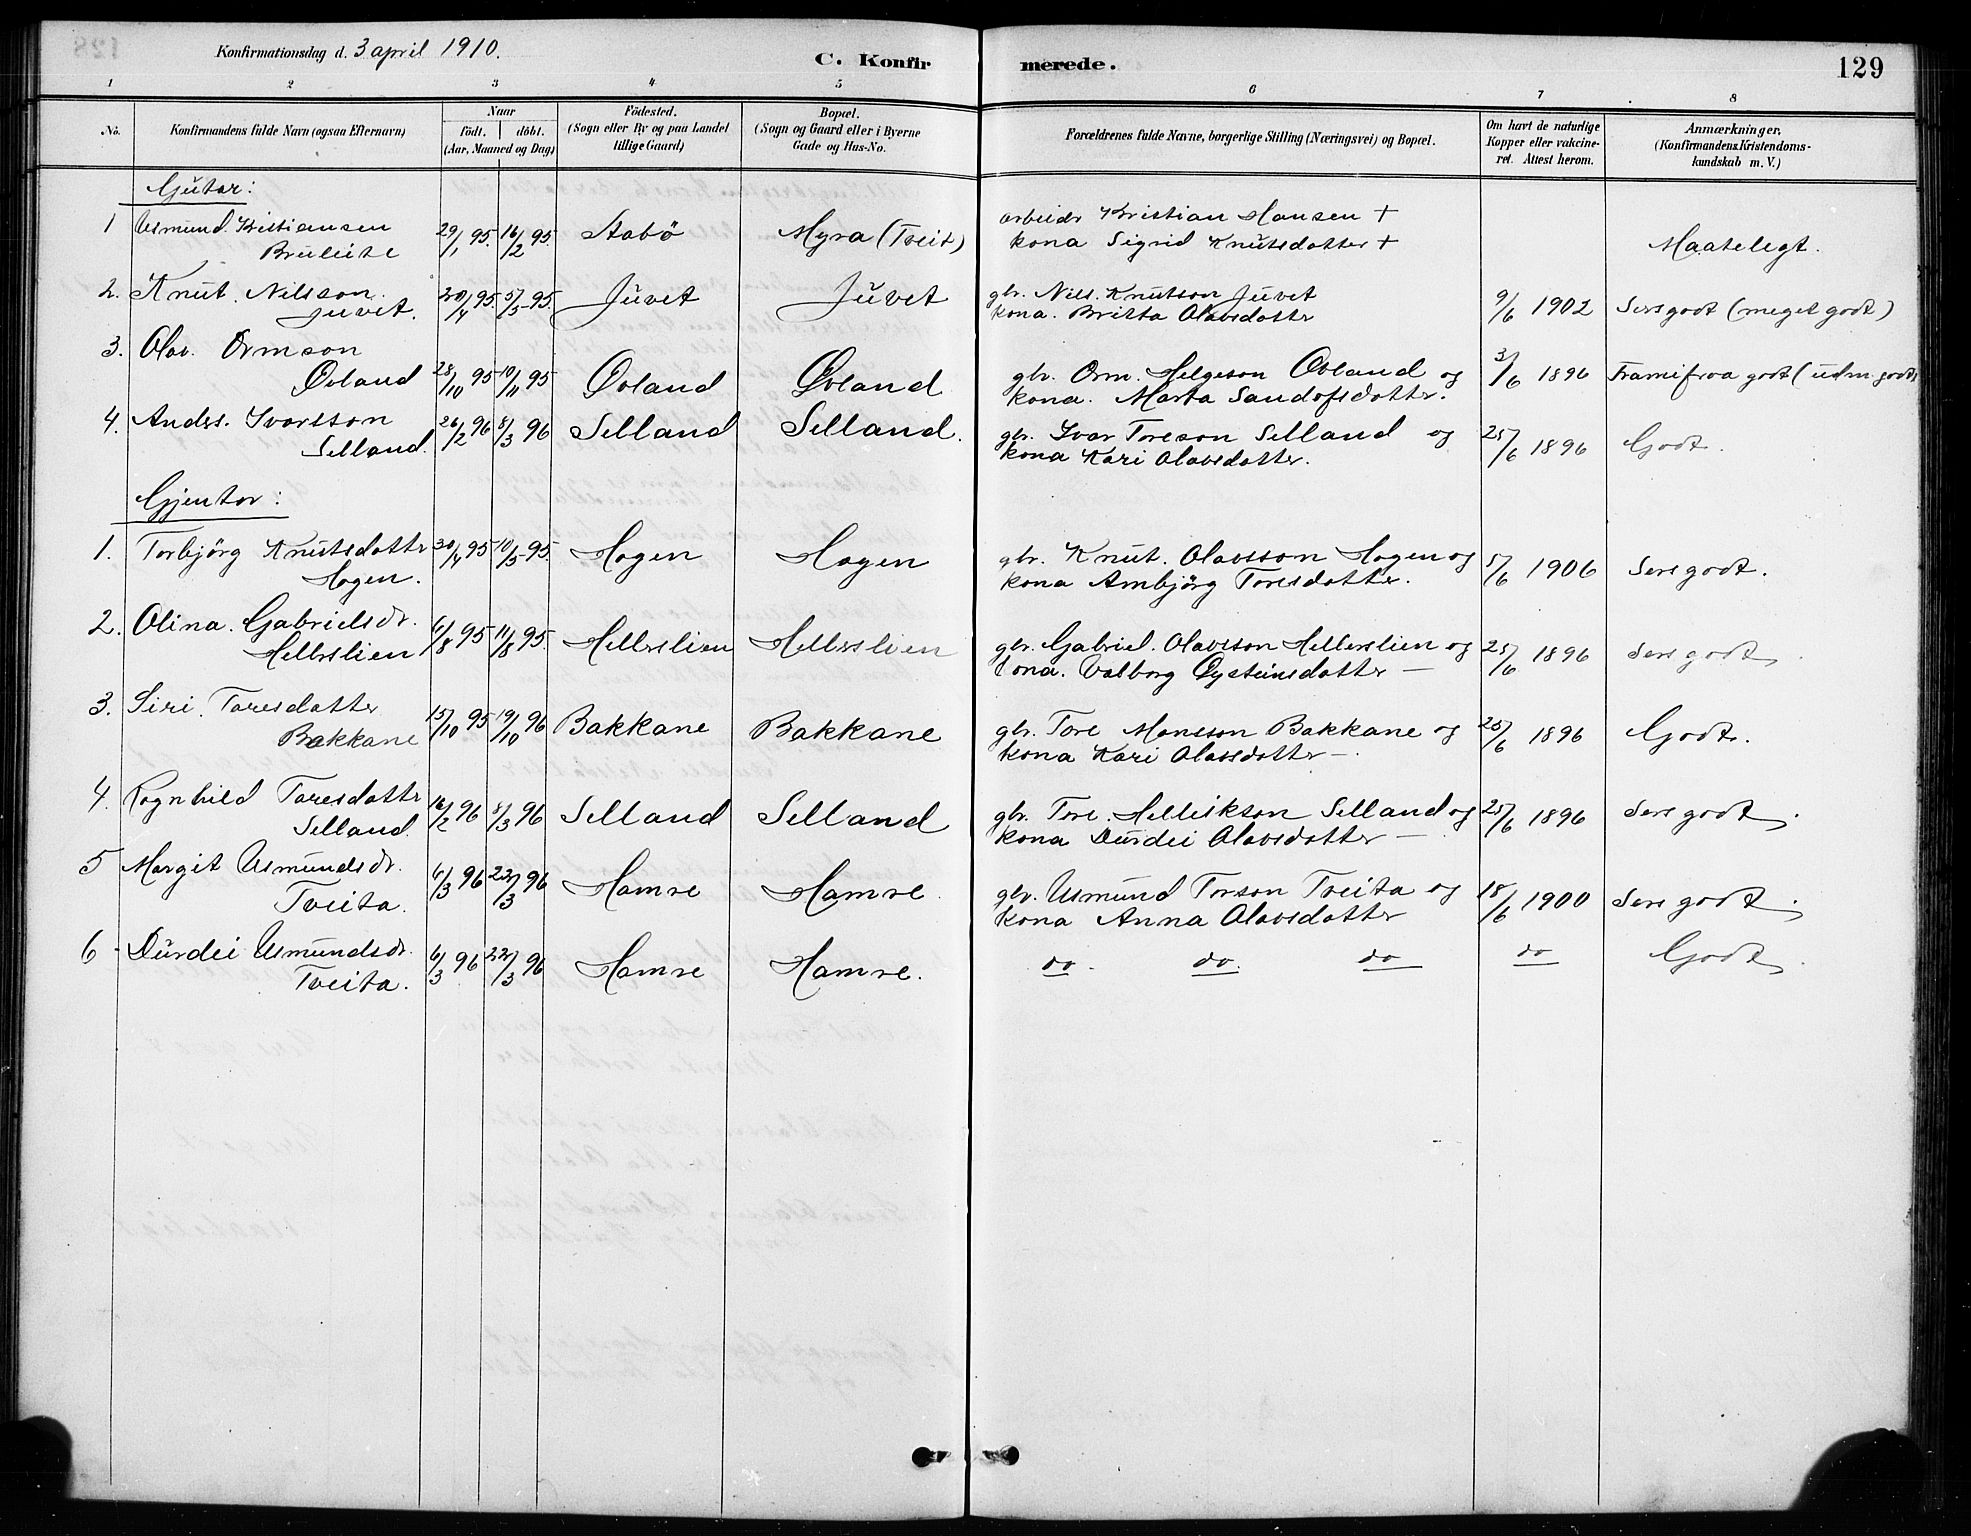 Konfirmationsdag d. 3 april 1910.
C. Konfirmerede.
129
1 2 3 4 5 6 7 8
No.
Konfirmandens fulde Navn (ogsaa Efternavn)
Naar
födt. döbt.
(Aar, Maaned og Dag)
Födested.
(Sogn eller By og paa Landet
tillige Gaard)
Bopæl.
(Sogn og Gaard eller i Byerne
Gade og Hus-No.
Forældrenes fulde Navne, borgerlige Stilling (Næringsvei) og Bopæl.
Om havt de naturlige
Kopper eller vakcine-
ret. Attest herom.
Anmærkninger.
(Konfirmandens Kristendoms-
kundskab m. V.)
Gutar:
1 Asmund Kristiansen 29/1 95. 16/2 95. Stabö Myra (Tveit) arbeidr Kristian Hansen +
kona Sigrid Knutsdotter + Maatelegt.
2. Knut. Nilsson 20/4 95. 5/5-95. Juvet Juvet gbr. Nils. Knutson Juvet 9/6 1902 Sersgodt (meget godt)
Juvet. kona. Britta Olavsdottr
3. Olav. Ormson
Ovland 28/10 95 10/11 95 Ovland Øvland gbr. Orm. Helgeson Ovland og 3/6 1896 Framifraa godt (udm. godt)
kona. Marta Sandofsdotter.
4. Anders. Ivarsson 26/2 96 8/3 96 Selland Selland. gbr. Ivar Toreson Selland og 25/6 1896 Godt.
Selland. kona Kari Olavsdotter.
Gjentor:
1. Torbjörg Knutsdottr 30/4 95 10/5-95. Hagen Hagen gbr. Knut. Olavsson Hagen og 5/6 1906 Sersgodt.
Hagen. kona Ambjörg Toresdotter.
2. Olina. Gabrielsdr. 6/8 95 11/8 95. Hellerslien Hellerslien gbr. Gabriel. Olavsson Hellerslien og 25/6 1896 Sersgodt.
Hellerslien kona. Valborg Øysteinsdotter —
3. Siri. Toresdotter 15/10 95 19/10 96 Bakkane Bakkane gbr. Tore Monsson Bakkane og 25/6 1896 Godt.
Bakkane kona Kari Olavsdotter —
4. Ragnhild Toresdottr 16/2 96 8/3 96 Selland Selland gbr. Tore. Helleikson Selland og 25/6 1896 Sersgodt.
Selland. kona Durdei Olavsdotter —
5 Margit Asmundsdr. 6/3 96 22/3 96 Hamre Hamre gbr. Asmund Torson Tveita og 18/6 1900 Sersgodt.
Tveita. kona Anna Olavsdotter
6 Durdei Asmundsdr. 6/3 96 22/3 96 Hamre Hamre. do. do. do do Godt.
Tveita.